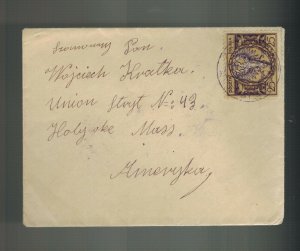 Szanowny Pan.
Wojciech Kratka.
Union Stryt No: 43.
Holyoke Mass.
Ameryka,